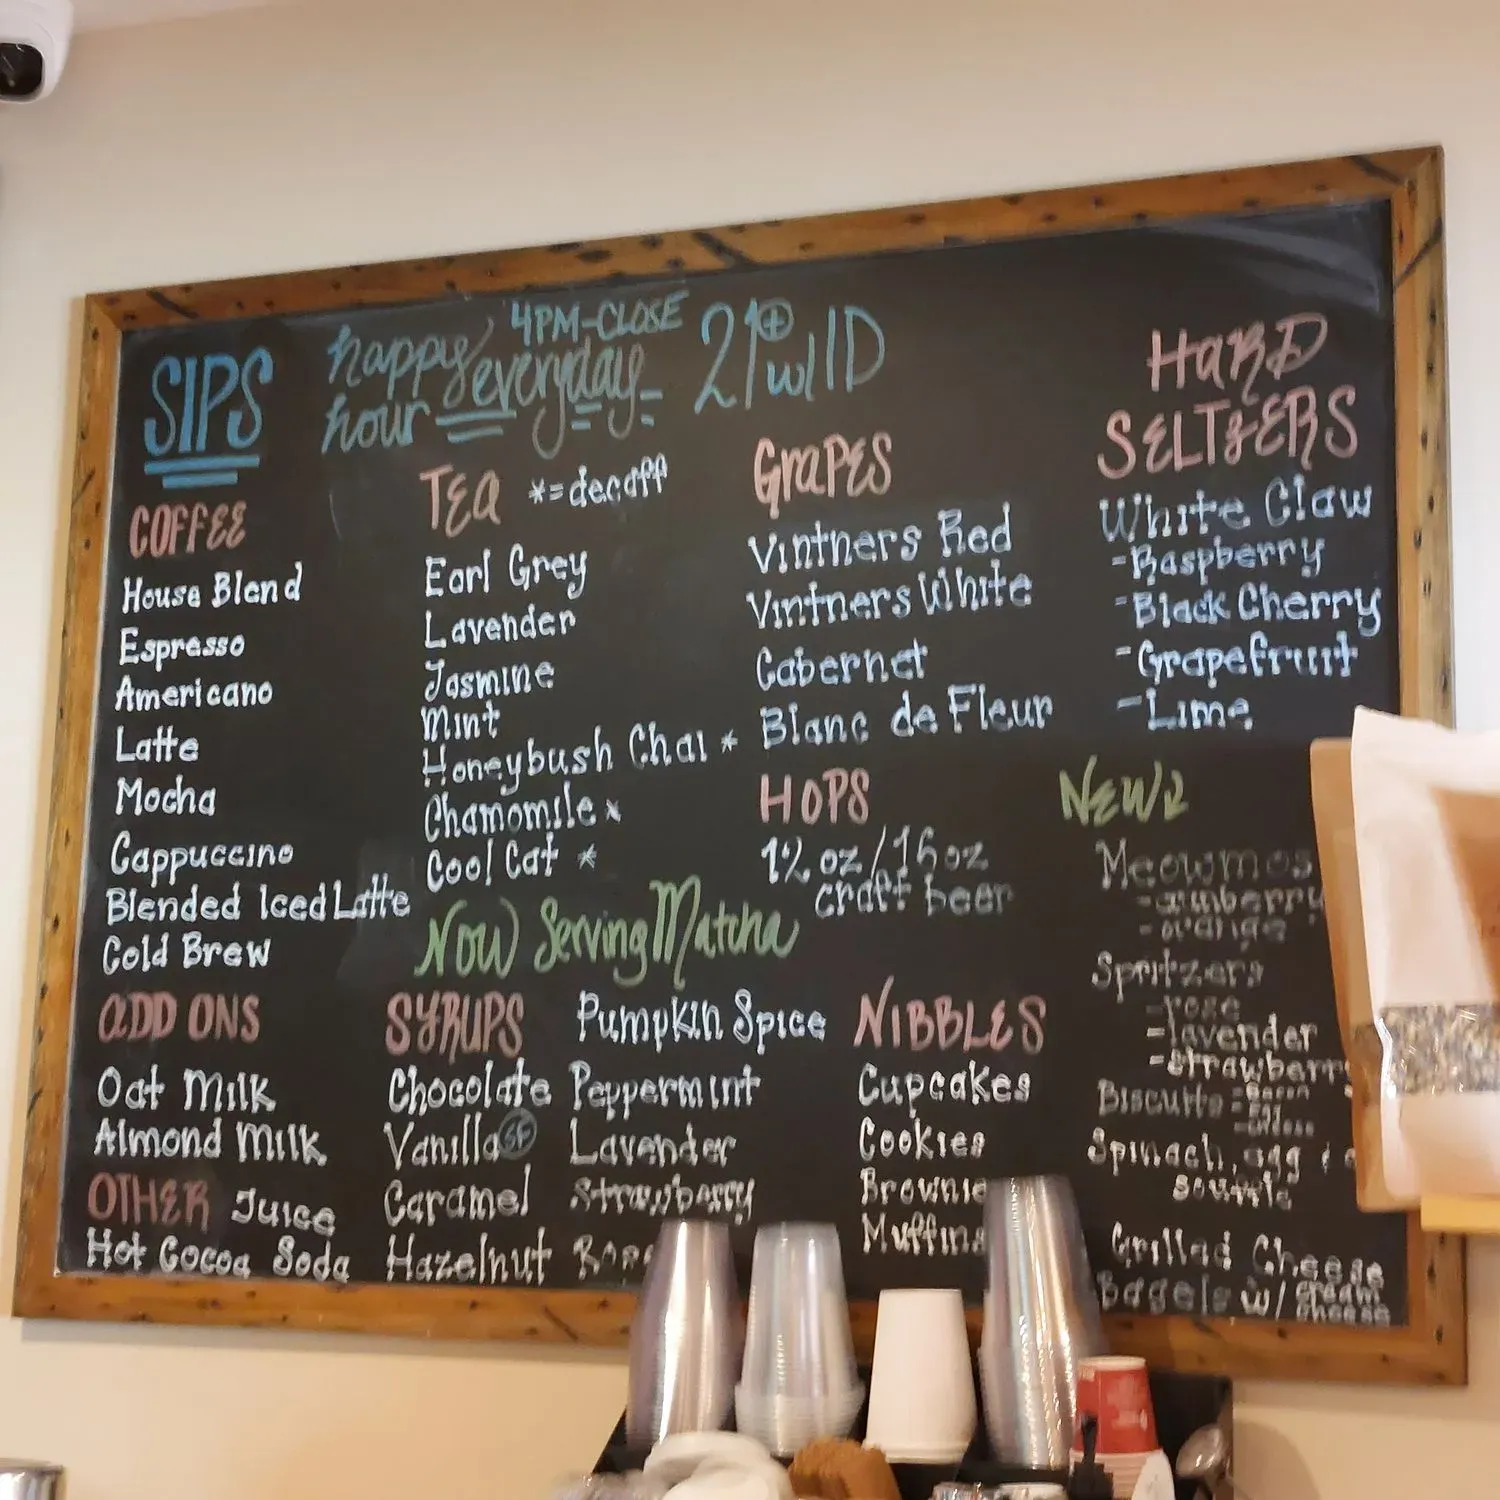 SIPS
happy hour everyday
4PM-CLOSE
21+ w/ID
COFFEE
House Blend
Espresso
Americano
Latte
Mocha
Cappuccino
Blended Iced Latte
Cold Brew
ADD ONS
Oat Milk
Almond Milk
OTHER Juice
Hot Cocoa Soda
TEA *=decaff
Earl Grey
Lavender
Jasmine
Mint
Honeybush Chai *
Chamomile *
Cool Cat *
Now Serving Matcha
SYRUPS
Chocolate
Vanilla SF
Caramel
Hazelnut
Pumpkin Spice
Peppermint
Lavender
Strawberry
GRAPES
Vintners Red
Vintners White
Cabernet
Blanc de Fleur
HOPS
12 oz/16 oz
craft beer
NIBBLES
Cupcakes
Cookies
Brownie
Muffins
HARD
SELTZERS
White Claw
-Raspberry
-Black Cherry
-Grapefruit
-Lime
NEW
Meowmos
-orange
Spritzers
-rose
-lavender
-strawberr
Biscuits -Bacon
-Egg
-cheese
Spinach, egg
souffle
Grilled Cheese
Bagels w/ cream
cheese